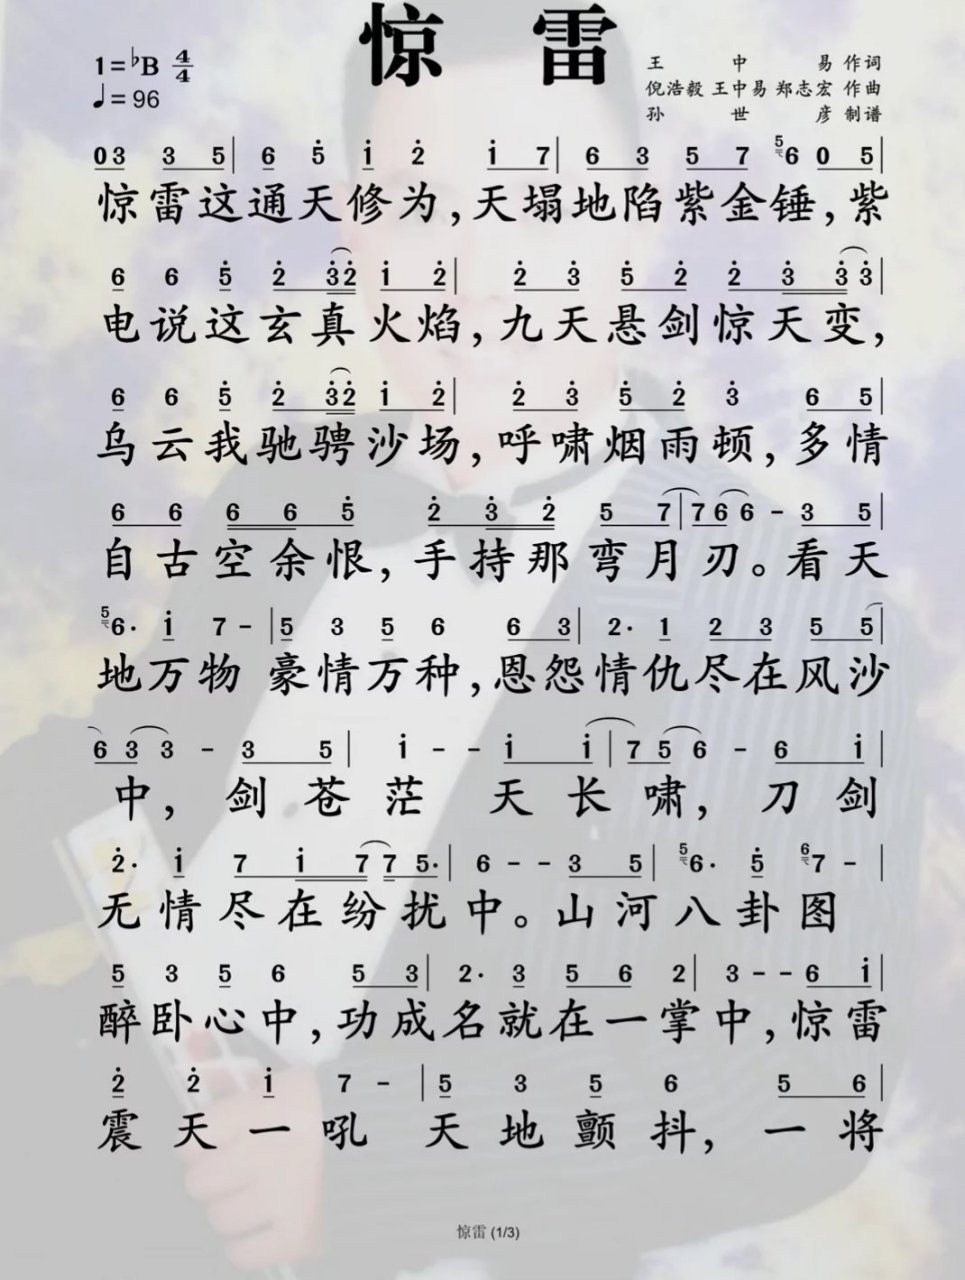 惊 雷
1=♭B 4/4
♩=96
王 中 易 作词
倪浩毅 王中易 郑志宏 作曲
孙 世 彦 制谱
03 3 5| 6 5̇ 1̇ 2̇ 1̇ 7| 6 3 5 7 5 6 0 5|
惊雷这通天修为,天塌地陷紫金锤,紫
6 6 5̇ 2̇ 3̇2̇ 1̇ 2̇| 2̇ 3̇ 5̇ 2̇ 2̇ 3̇ 3̇ 3̇|
电说这玄真火焰,九天悬剑惊天变,
6 6 5̇ 2̇ 3̇2̇ 1̇ 2̇| 2̇ 3̇ 5̇ 2̇ 3̇ 6 5|
乌云我驰骋沙场,呼啸烟雨顿,多情
6 6 6 6 5̇ 2̇ 3̇ 2̇ 5 7|7 6 6 - 3 5|
自古空余恨,手持那弯月刃。看天
5 6· 1̇ 7 - |5 3 5 6 6 3| 2· 1 2 3 5 5|
地万物 豪情万种,恩怨情仇尽在风沙
6 3 3 - 3 5| 1̇ - - 1̇ 1̇|7 5 6 - 6 1̇|
中, 剑苍茫 天长啸, 刀剑
2̇· 1̇ 7 1̇ 7 7 5·| 6 - - 3 5| 5 6· 5̇ 6 7 - |
无情尽在纷扰中。山河八卦图
5 3 5 6 5 3| 2· 3 5 6 2| 3 - - 6 1̇|
醉卧心中,功成名就在一掌中,惊雷
2̇ 2̇ 1̇ 7 - |5 3 5 6 5 6|
震天一吼 天地颤抖,一将
惊雷 (1/3)